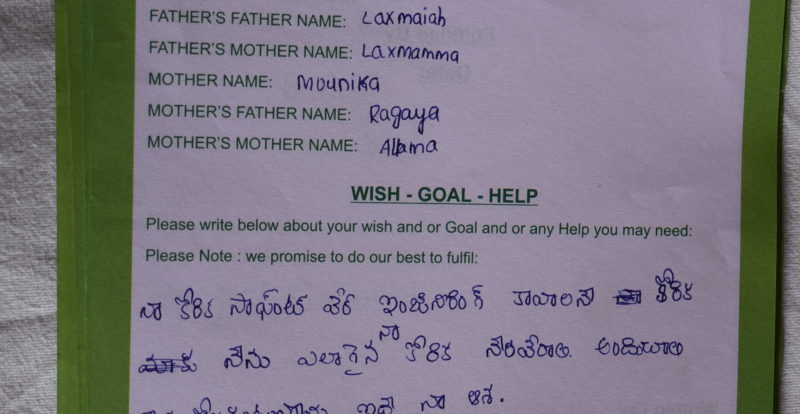 FATHER'S FATHER NAME: Laxmaiah
FATHER'S MOTHER NAME: Laxmamma
MOTHER NAME: Mounika
MOTHER'S FATHER NAME: Ragaya
MOTHER'S MOTHER NAME:
WISH - GOAL - HELP
Please write below about your wish and or Goal and or any Help you may need:
Please Note : we promise to do our best to fulfil:
నా కోరిక సాఫ్ంట్ వేర్ ఇంజినీరింగ్ కావాలనే కోరిక
నేను ఎలాగైన నా కోరిక నేరవేరాలి.
ఇదే నా ఆశ.